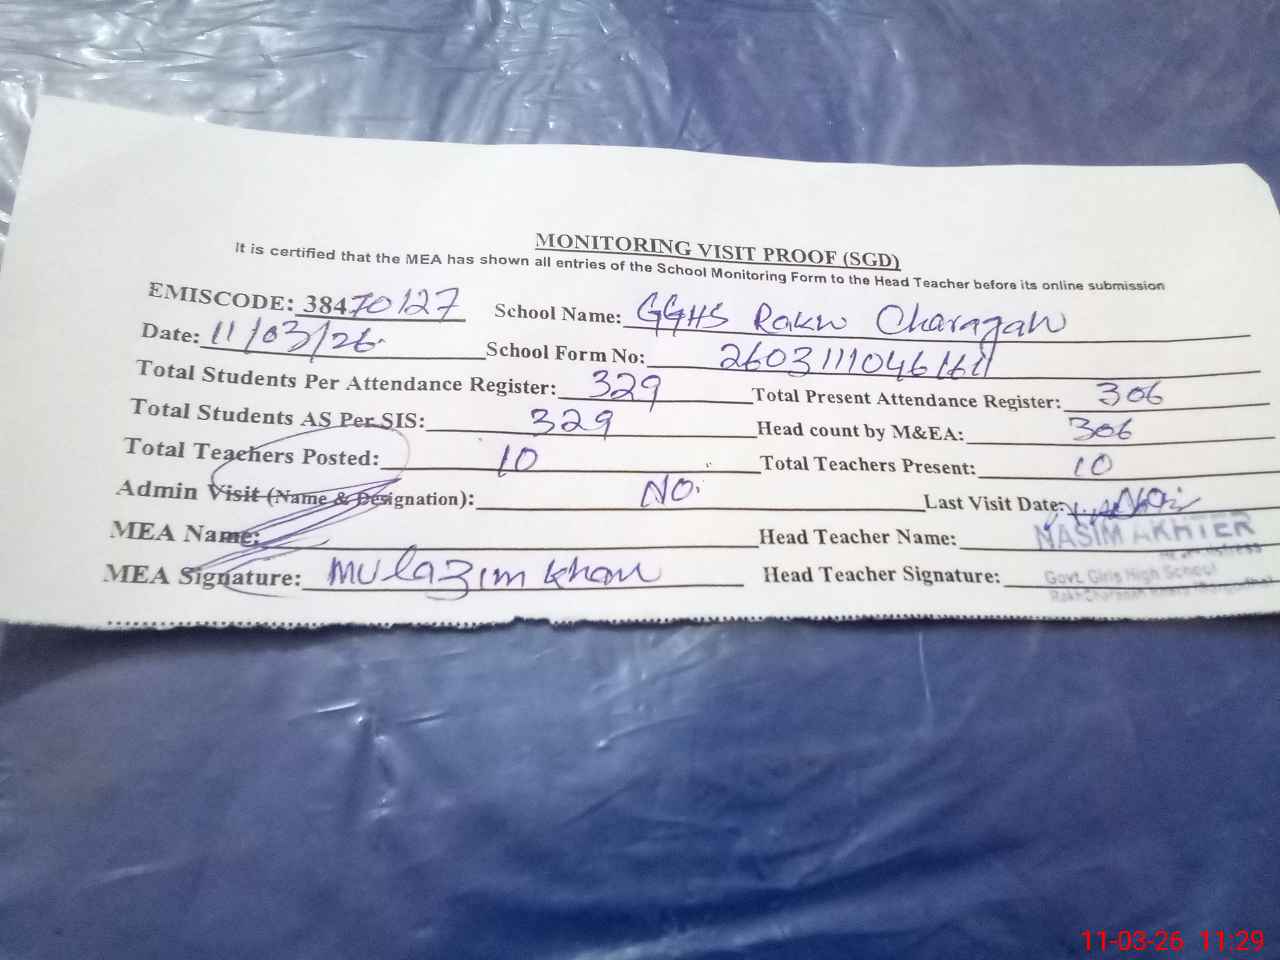 MONITORING VISIT PROOF (SGD)
It is certified that the MEA has shown all entries of the School Monitoring Form to the Head Teacher before its online submission
EMISCODE: 38470127 School Name: GGHS Rakh Charagah
Date: 11/03/26. School Form No: 2603111046161
Total Students Per Attendance Register: 329 Total Present Attendance Register: 306
Total Students AS Per SIS: 329 Head count by M&EA: 306
Total Teachers Posted: 10 Total Teachers Present: 10
Admin Visit (Name & Designation): NO. Last Visit Date:
MEA Name: Head Teacher Name: NASIM AKHTER
Headmistress
MEA Signature: Mulazim Khan Head Teacher Signature: Govt. Girls High School
11-03-26 11:29